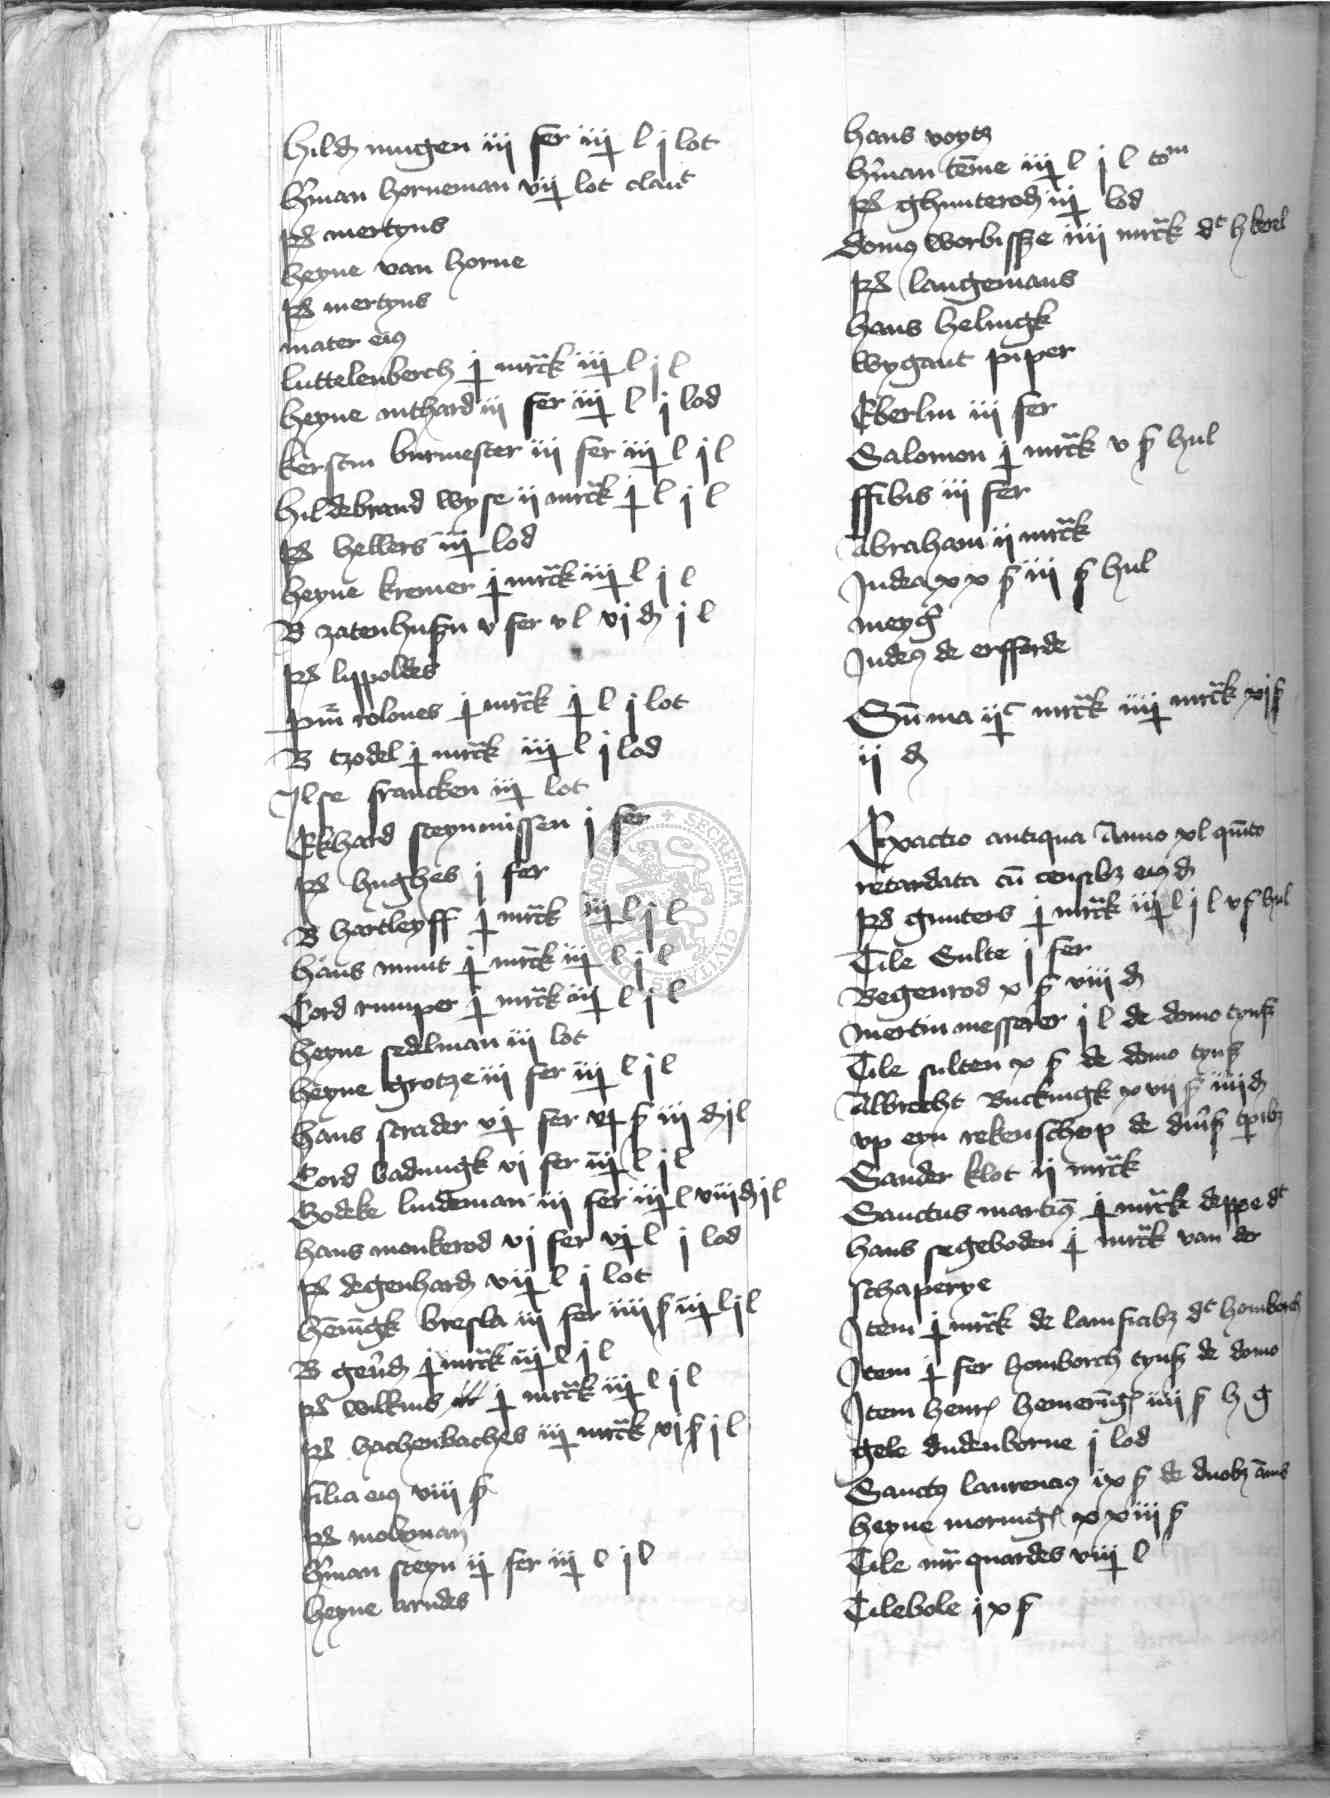 hild mugen iii fer iij l j lot
hman horneman vij lot claut
pd mertyns
heyne van horne
pd mertyns
mater eius
luttelenberch j mrck iij l j l
heyne nithard iii fer iij l j lod
kerstin burmester iii fer iij l j l
hildebrand wyse ii mrck j l j l
pd hellers iij lod
heyne kremer j mrck iij l j l
B zatenhusen v fer v l vj d j l
pd lippoldes
pm colones j mrck j l j lot
B tzodel j mrck iij l j lod
Ilse francken iij lot
Ekhard steynnissen j fer
pd hughes j fer
B hartleyff j mrck iij l j l
hans munt j mrck iij l j l
Cord rumper j mrck iij l j l
heyne sedelman iii lot
heyne grotze iii fer iij l j l
hans scrader vj fer vj s iii d j l
Cord badungk vi fer iij l j l
Bodeke lindeman iii fer iij l viii d j l
hans monkerod vj fer vj l j lod
pd degenhard vij l j lot
henigk bresla iij fer iiii s iij l j l
B gerd j mrck iij l j l
pd wilkins j mrck iij l j l
pd hachenbaches iij mrck vj s j l
filia eius viii s
pd molman
hman steyn ij fer iij l j l
heyne arndes
hans voytz
hman teme iij l j l tom
pd ghunterod iij lod
domus worbissze iiii mrck dt h
pd langemans
hans helingk
wygant piper
Eberlin iii fer
Salomon j mrck v s hul
ffibis iii fer
Abraham ii mrck
Judea xx s iii s hul
meyg
Judeus de erfforde
Summa ijc mrck iiij mrck xj s
ii d
Exactio antiqua Anno xl quinto
retardata cu censibz eiusd
pd gunters j mrck iij l j l v s hul
Tile Sulte j fer
Begenrod x s viii d
mertin messerer j l de domo tyns
Tile sulten x s de domo tyns
Albrecht Buckingk xvii s iiii d
vp eyn rekenschop de
Sander klot ii mrck
Sanctus martinus j mrck deppe dt
hans segeboden j mrck van der
schaperye
Item j mrck de lanificibz dt homborch
Item j fer homborch tyns de domo
Item henr hemering iiii s h g
gele dudenborne j lod
Sanctus laurencius ix s de duobz annis
heyne moring xxiii s
Tile mr quardes viij l
Tilebole ix s
SECRETUM CIVITATIS